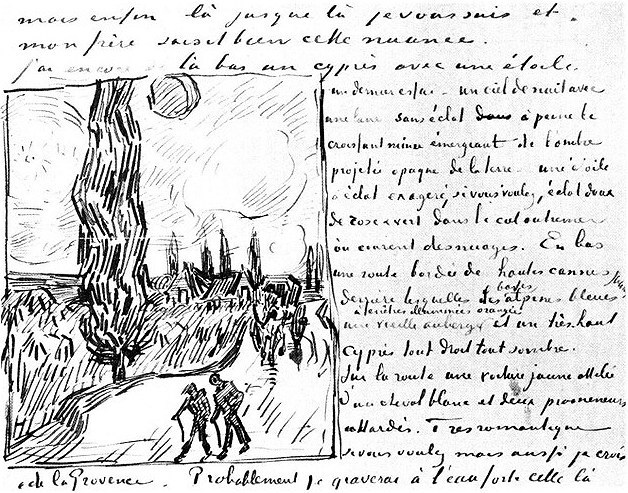 mais enfin là jusque là je vous suis et
mon frère saisit bien cette nuance.
J'ai encore de là bas un cyprès avec une étoile
un dernier essai - un ciel de nuit avec
une lune sans éclat à peine le
croissant mince émergeant de l'ombre
projetée opaque de la terre - une étoile
à éclat exageré, si vous voulez, éclat doux
de rose & vert dans le ciel outremer
où courent des nuages. En bas
une route bordée de hautes cannes
derrière lesquelles les basses alpines bleues
une vieille auberge à fenêtres illuminées orangée et un très haut
cyprès tout droit tout sombre.
Sur la route une voiture jaune attelée
d'un cheval blanc et deux promeneurs
attardés. Très romantique
si vous voulez mais aussi je crois
de la Provence. Probablement je graverai à l'eau forte celle là